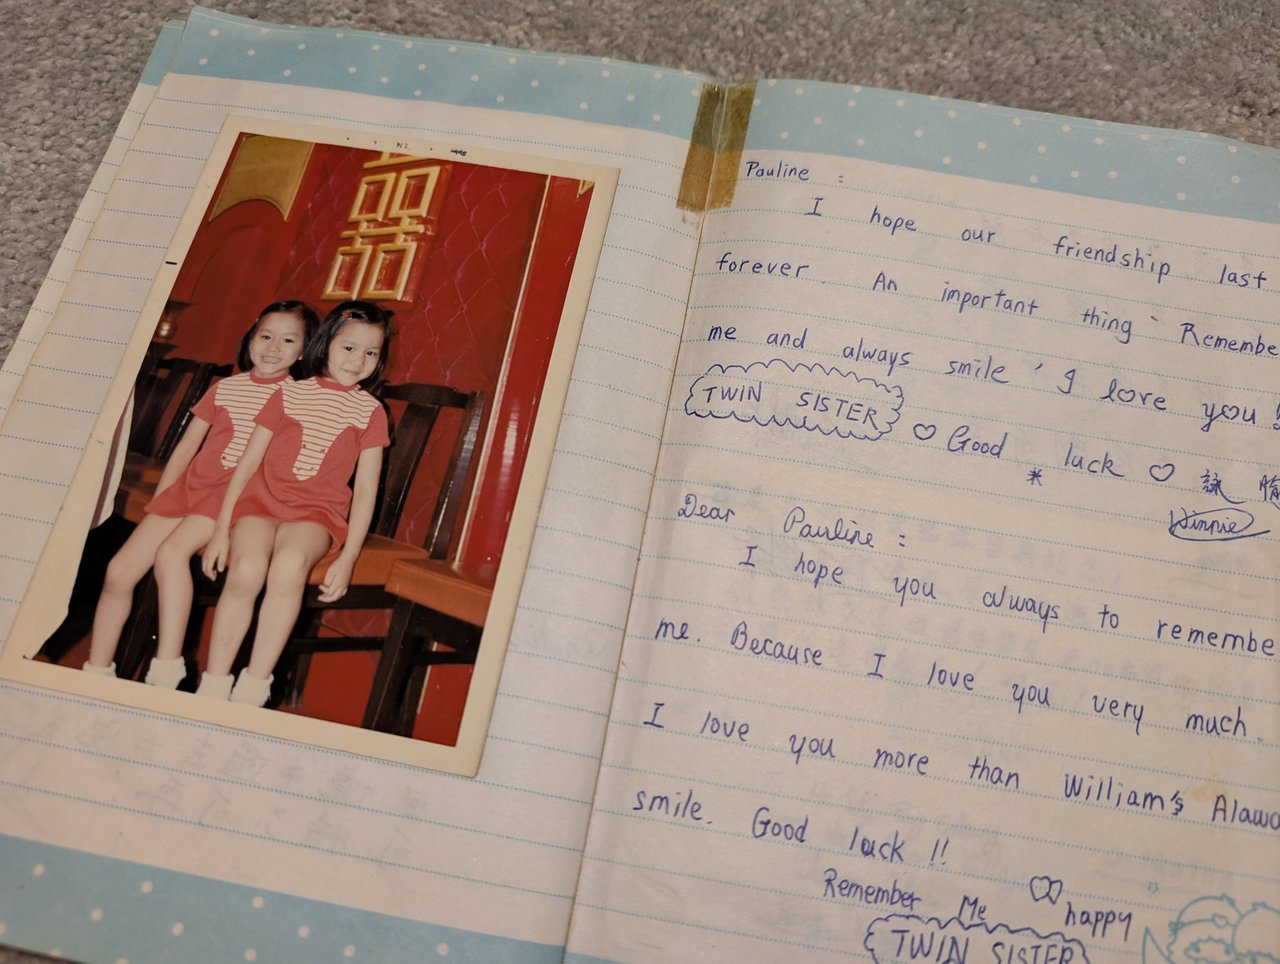 囍
Pauline :
I hope our friendship last
forever. An important thing " Remembe
me and always smile ' I love you !!
TWIN SISTER
Good luck
詠
Winnie
Dear Pauline :
I hope you always to remembe
me. Because I love you very much.
I love you more than William's Alawa
smile. Good luck !!
Remember Me happy
TWIN SISTER